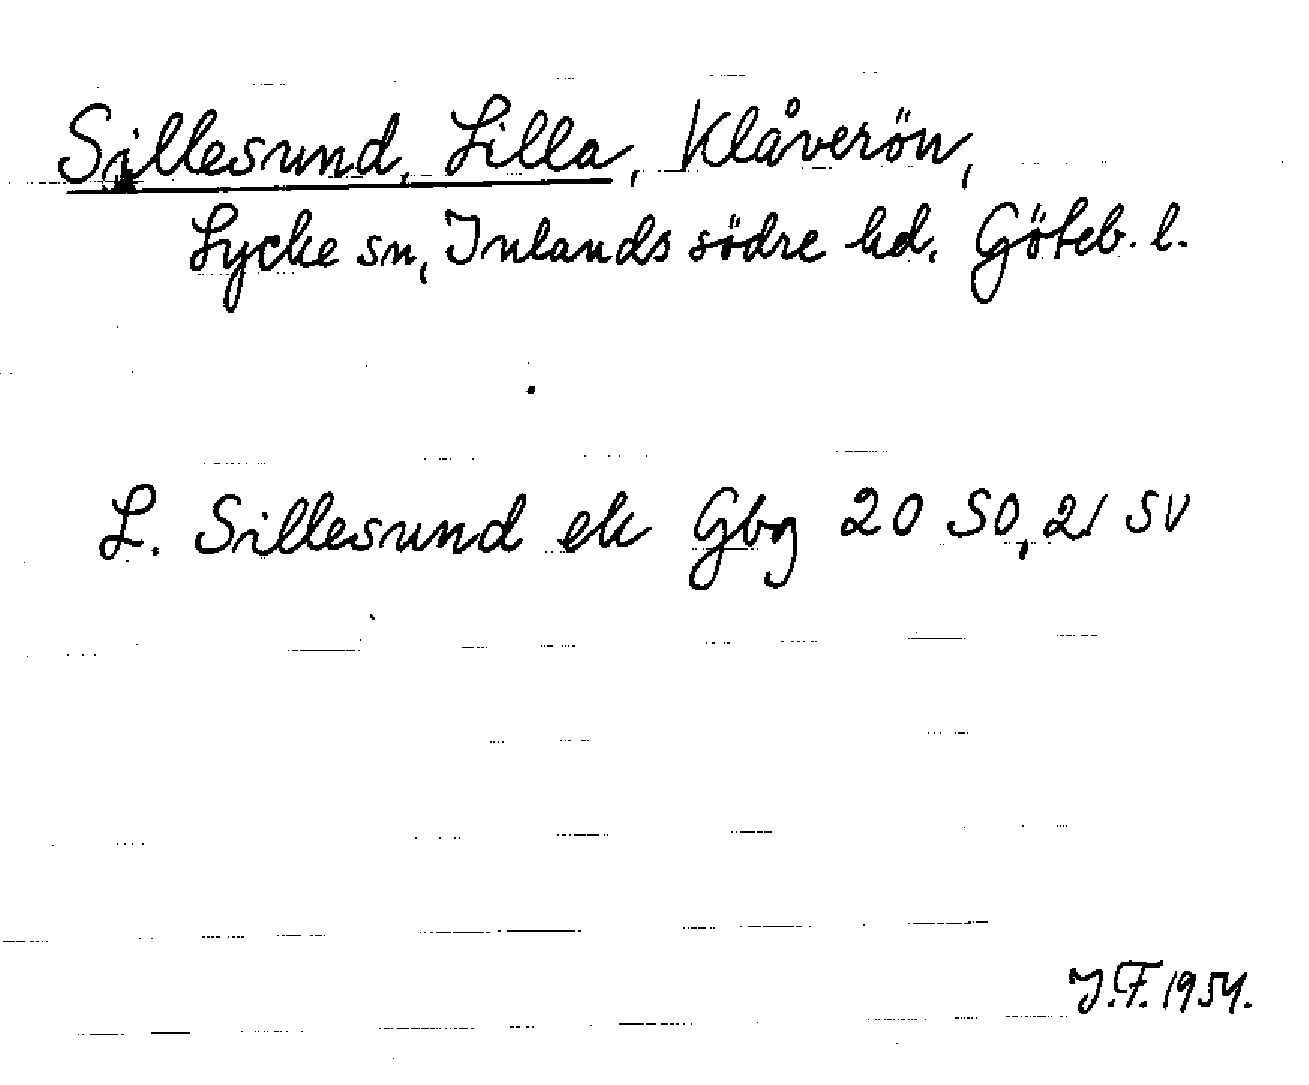 Sillesund, Lilla, Klåverön,
Lycke sn, Inlands södre hd. Göteb. l.
L. Sillesund ek Gbg 20 SO, 21 SV
J.F. 1954.